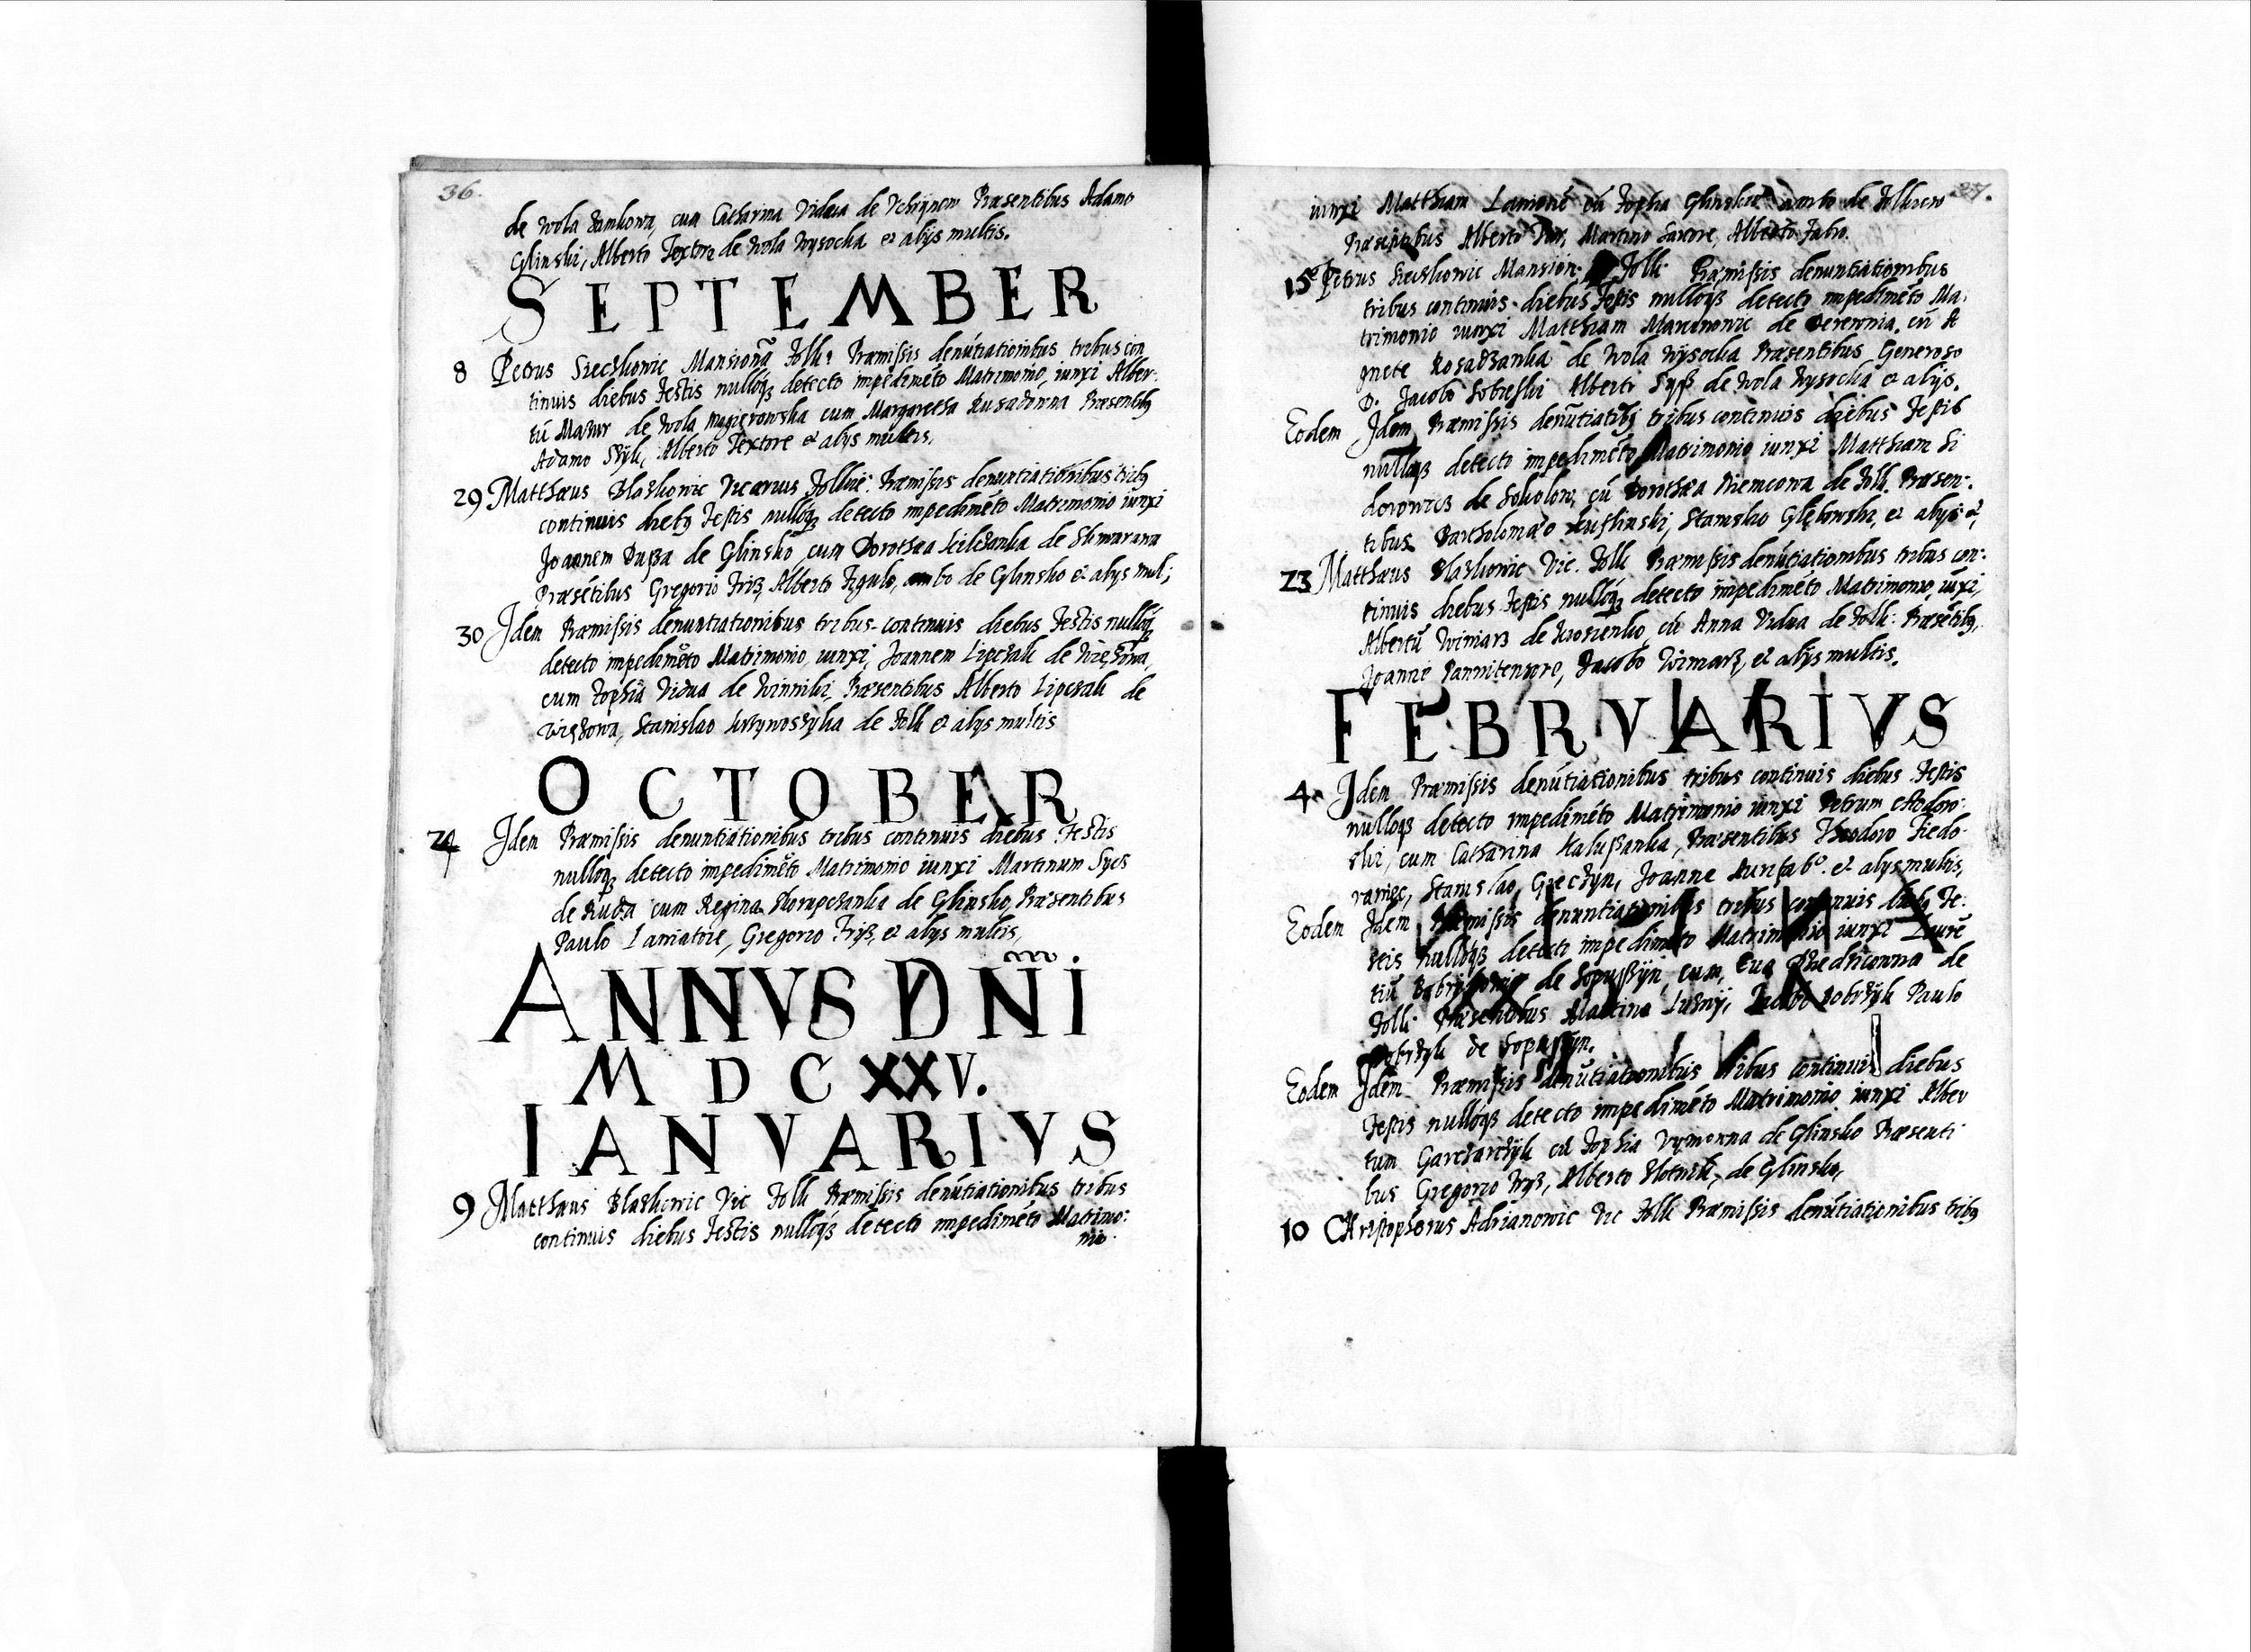 36.
de Wola Zamkowa, cum Catharina Vidua de Praesentibus Adamo
Glinski, Alberto Textore de Wola Wysocka et alijs multis.
SEPTEMBER
8 Petrus Sieczkowic Mansionã Zolk: Praemissis denutiationibus tribus con
tinuis diebus Festis nulloq3 detecto impedimẽto Matrimonio, iunxi Alber:
tũ Mazur de Wola Magierowska cum Margaretha Rusadowna Praesentib9
Adamo Alberto Textore et alys multis.
29 Matthaeus Blazkowic Vicarius Zolkie: Praemissis denuntiationibus trib9
continuis dieb9 Festis nulloq3 detecto impedimẽto Matrimonio iunxi
Joannem de Glinsko cum Dorothea de
Praesẽtibus Gregorio Friß, Alberto Figulo, ambo de Glinsko et alys mul;
30 Idem Praemissis denuntiationibus tribus continuis diebus Festis nulloq3
detecto impedimẽto Matrimonio, iunxi, Joannem Lipczak de
cum Zophia Vidua de Winniki, Praesentibus Alberto Lipczak de
Stanislao de Zolk et alys multis
OCTOBER
24 Idem Praemissis denuntiationibus tribus continuis diebus Festis
nulloq3 detecto impedimẽto Matrimonio iunxi Martinum Sycs
de Ruda cum Regina de Glinsko, Praesentibus
Paulo Laniatore, Gregorio Friß, et alys multis,
ANNVS DÑI
MDCXXV.
IANVARIVS
9 Matthaeus Blazkowic Vic Zolk Praemissis denutiationibus tribus
continuis diebus Festis nulloq3 detecto impedimẽto Matrimo:
nio
37.
iunxi Matthiam cũ Zophia ambo de
Praesentibus Alberto Martino Sartore, Alberto Fabro.
15 Petrus Sieczkowic Mansion: Zolk: Praemissis denuntiationibus
tribus continuis diebus Festis nulloq3 detecto impedimẽto Ma:
trimonio iunxi Matthiam de Derewnia, cũ A
gnete de Wola Wysocka Praesentibus Generoso
D. Jacobo Sobeski Alberto de Wola Wysocka et alijs.
Eodem Idem Praemissis denũtiatib9 tribus continuis diebus Festis
nulloq3 detecto impedimẽto Matrimonio iunxi Matthiam Si
de Sokolow, cũ Dorothea Niemcowa de Zolk. Praesen:
tibus Bartholomaeo Stanislao et alys
23 Matthaeus Blazkowic Vic. Zolk Praemissis denutiationibus tribus con:
tinuis diebus Festis nulloq3 detecto impedimẽto Matrimonio, iũxi,
Albertũ Winiarz de cũ Anna Vidua de Zolk: Praesẽtib9,
Joanne Pannitensore, Jacobo Winiarz, et alijs multis.
FEBRVARIVS
4 Idem Praemissis denũtiationibus tribus continuis diebus Festis
nulloq3 detecto impedimẽto Matrimonio iunxi Petrum
ski, cum Catharina Kalußanka, Praesentibus Theodoro Fiedo:
Stanislao Joanne et alys multis,
Eodem Idem Praemissis denuntiationibus tribus continuis dieb9 Fe:
stis nulloq3 detecto impedimẽto Matrimonio iunxi Laurẽ
tiũ de cum Eua de
Zolk: Praesentibus Martino Jacobo Dobrzyk Paulo
Dobrzyk de
Eodem Idem Praemissis denũtiationibus tribus continuis diebus
Festis nulloq3 detecto impedimẽto Matrimonio iunxi Alber
tum Garczarczyk cũ Zophia de Glinsko Praesenti
bus Gregorio Fryß, Alberto de Glinsko,
10 Christophorus Adrianowic Vic Zolk Praemissis denũtiationibus trib9